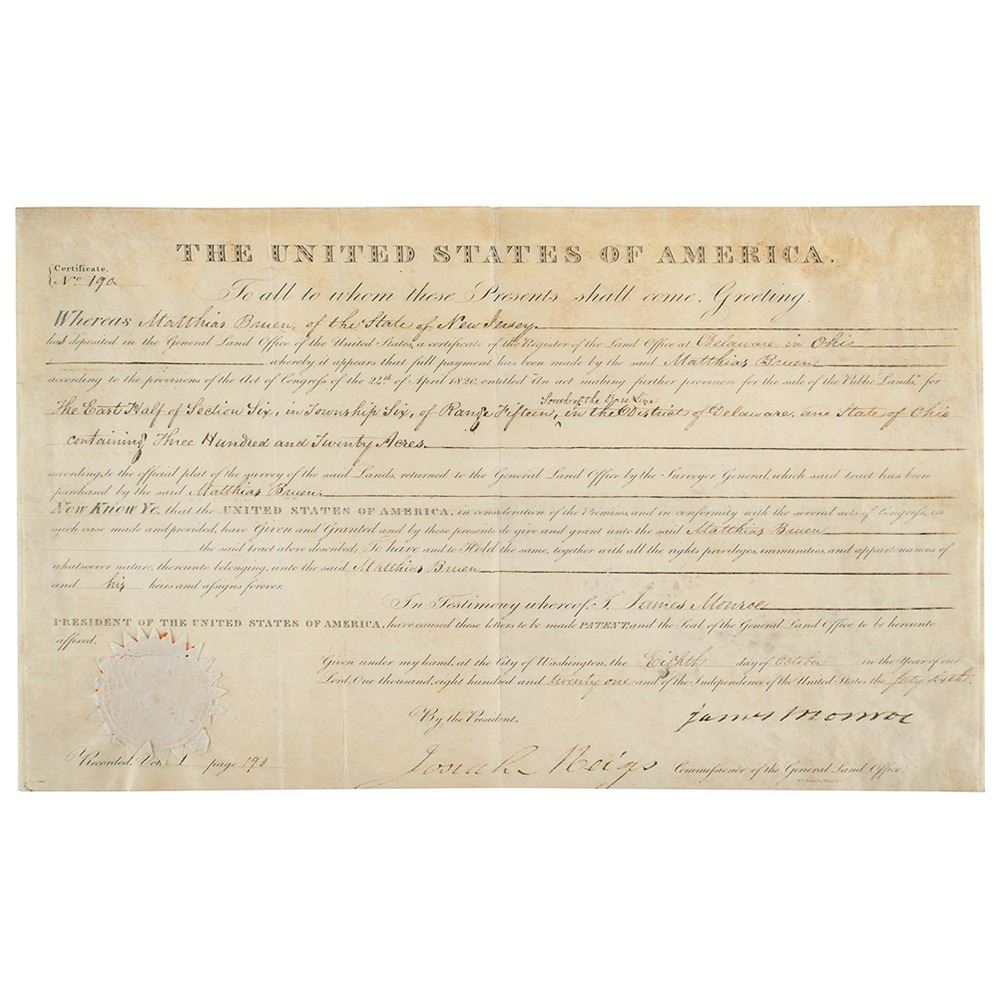 THE UNITED STATES OF AMERICA.
Certificate.
No 190
To all to whom these Presents shall come, Greeting.
Whereas Matthias Bruen, of the State of New Jersey
has deposited in the General Land Office of the United States, a certificate of the Register of the Land Office at Delaware in Ohio
whereby it appears that full payment has been made by the said Matthias Bruen
according to the provisions of the Act of Congress of the 24th of April 1820, entitled "An act making further provision for the sale of the Public Lands," for
South of the Base Line
The East Half of Section Six, in Township Six, of Range Fifteen, in the District of Delaware, and State of Ohio
containing Three Hundred and Twenty Acres
according to the official plat of the survey of the said Lands, returned to the General Land Office by the Surveyor General, which said tract has been
purchased by the said Matthias Bruen
Now Know Ye, that the UNITED STATES OF AMERICA, in consideration of the Premises, and in conformity with the several acts of Congress, in
such case made and provided, have Given and Granted and by these presents do give and grant unto the said Matthias Bruen
the said tract above described; To have and to Hold the same, together with all the rights privileges, immunities, and appurtenances of
whatsoever nature, thereunto belonging, unto the said Matthias Bruen
and his heirs and assigns forever.
In Testimony whereof, I, James Monroe
PRESIDENT OF THE UNITED STATES OF AMERICA, have caused these letters to be made PATENT, and the Seal of the General Land Office to be hereunto
affixed.
Given under my hand, at the City of Washington, the Eighth day of October in the Year of our
Lord One thousand, eight hundred and twenty one and of the Independence of the United States the forty sixth.
By the President.
James Monroe
Josiah Meigs Commissioner of the General Land Office.
Recorded, Vol. 1 page 190